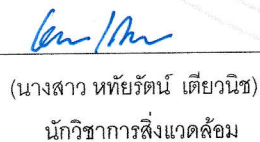 (นางสาว หทัยรัตน์ เตียวนิช)
นักวิชาการสิ่งแวดล้อม